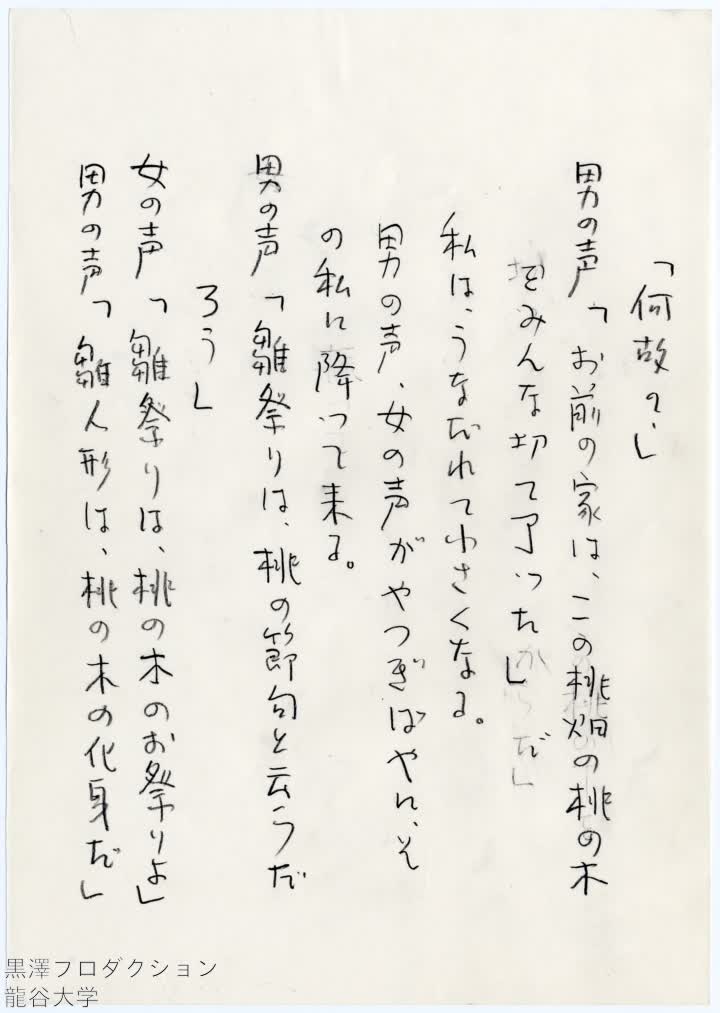 「何故？」
男の声「お前の家は、この桃畑の桃の木
をみんな切って了った」
私は、うなだれて小さくなる。
男の声、女の声がやつぎばやに、そ
の私に降って来る。
男の声「雛祭りは、桃の節句と云うだ
ろう」
女の声「雛祭りは、桃の木のお祭りよ」
男の声「雛人形は、桃の木の化身だ」
黒澤プロダクション
龍谷大学